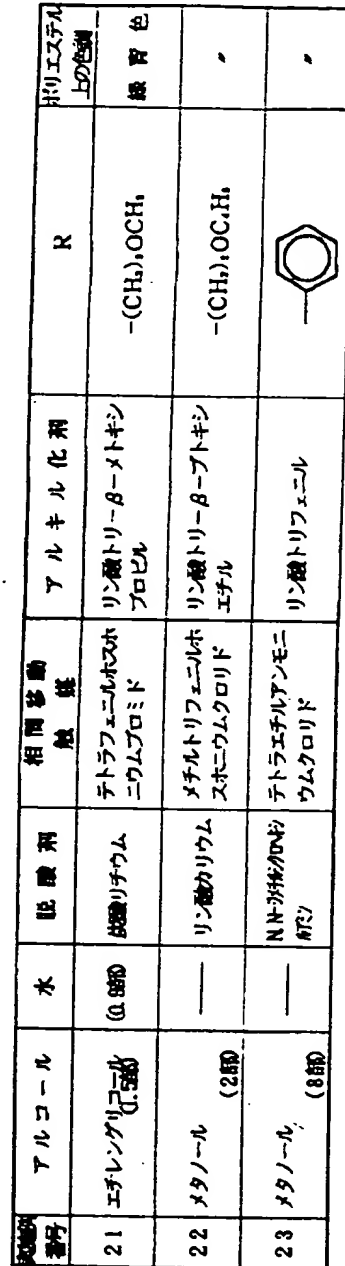 実施例
番号
アルコール
水
脱酸剤
相間移動
触媒
アルキル化剤
R
ポリエステル
上の色調
21
エチレングリコール
(1.5部)
(0.9部)
炭酸リチウム
テトラフェニルホスホ
ニウムブロミド
リン酸トリ-β-メトキシ
プロピル
-(CH₂)₃OCH₃
緑青色
22
メタノール
(2部)
——
リン酸カリウム
メチルトリフェニルホ
スホニウムクロリド
リン酸トリ-β-ブトキシ
エチル
〃
23
メタノール
(8部)
——
テトラエチルアンモニ
ウムクロリド
リン酸トリフェニル
〃